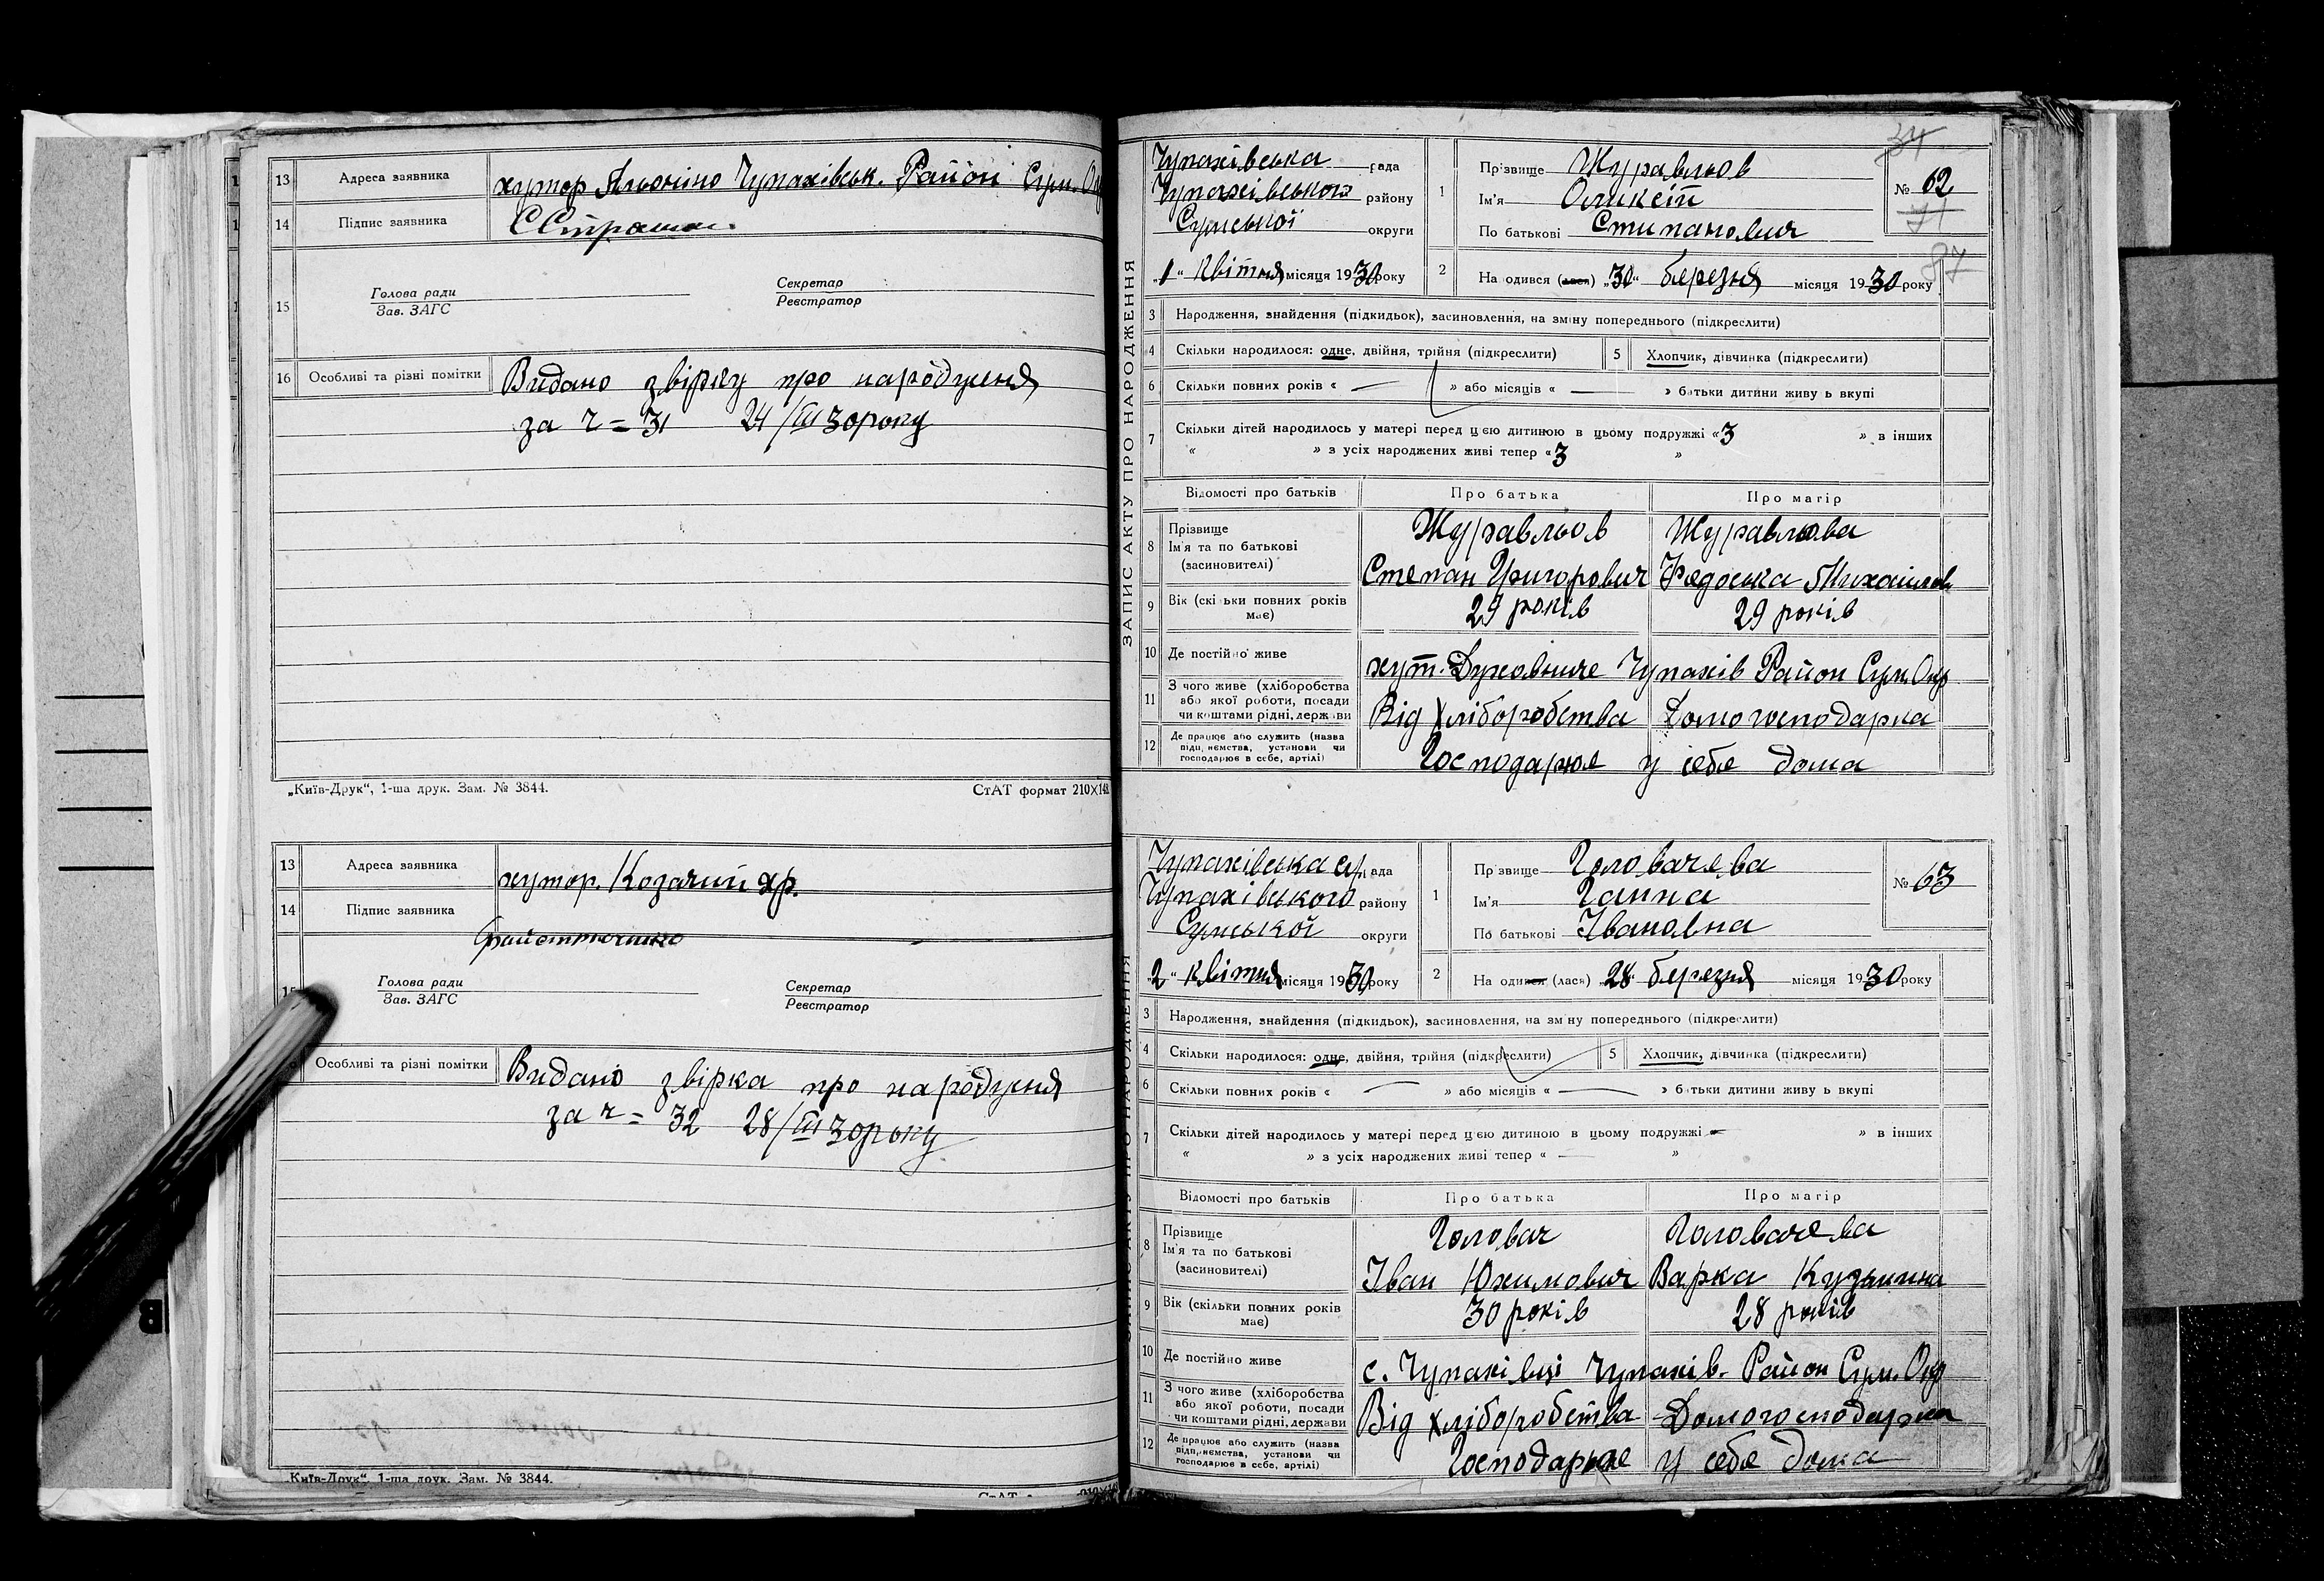 13 Адреса заявника хутор Альоніно Чупахівськ. Район Сум. Ок
14 Підпис заявника ССтрашн.
15 Голова ради
Зав. ЗАГС
Секретар
Реєстратор
16 Особливі та різні помітки Видано звірку про народженя
за ч = 31 24/III 30 року
„Київ-Друк“, 1-ша друк. Зам. № 3844. СтАТ формат 210×148
13 Адреса заявника хутор. Козачий яр.
14 Підпис заявника
Голова ради
Зав. ЗАГС
Секретар
Реєстратор
Особливі та різні помітки Видано звірка про народженя
за ч = 32 28/III 30 року
„Київ-Друк“, 1-ша друк. Зам. № 3844.
ЗАПИС АКТУ ПРО НАРОДЖЕННЯ
34
Чупахівська рада
Чупахівського району
Сумської округи
„1“ Квітня місяця 1930 року
1 Прізвище Журавльов
Ім'я Оликсій
По батькові Стипанович
№ 62
71
87
2 На одився (лася) „30“ березня місяця 1930 року
3 Народження, знайдення (підкидьок), засиновлення, на зміну попереднього (підкреслити)
4 Скільки народилося: одне, двійня, трійня (підкреслити) 5 Хлопчик, дівчинка (підкреслити)
6 Скільки повних років « — » або місяців « — » батьки дитини живу ь вкупі
7 Скільки дітей народилось у матері перед цією дитиною в цьому подружжі «3 » в інших
« » з усіх народжених живі тепер «3 »
Відомості про батьків Про батька Про матір
8 Прізвище
Ім'я та по батькові
(засиновителі)
Журавльов Журавльова
Степан Григорович Федоська Михайлов.
9 Вік (скі ьки повних років має) 29 років 29 років
10 Де постійно живе хут. Духовниче Чупахів Район Сум. Окр
11 З чого живе (хліборобства
або якої роботи, посади
чи коштами рідні, держави
Від Хліборобства Домогосподарка
12 Де працює або служить (назва
підприємства, установи чи
господарює в себе, артілі)
Господарює у себе дома
Чупахівська с. рада
Чупахівського району
Сумської округи
„2“ квітня місяця 1930 року
1 Прізвище Головачева
Ім'я Ганна
По батькові Івановна
№ 63
2 На одився (лася) „28“ березня місяця 1930 року
3 Народження, знайдення (підкидьок), засиновлення, на зміну попереднього (підкреслити)
4 Скільки народилося: одне, двійня, трійня (підкреслити) 5 Хлопчик, дівчинка (підкреслити)
6 Скільки повних років « — » або місяців « — » батьки дитини живу ь вкупі
7 Скільки дітей народилось у матері перед цією дитиною в цьому подружжі — » в інших
« » з усіх народжених живі тепер « — »
Відомості про батьків Про батька Про матір
8 Прізвище
Ім'я та по батькові
(засиновителі)
Головач Головачева
Іван Юхимович Варка Кузьминна
9 Вік (скільки повних років має) 30 років 28 років
10 Де постійно живе с. Чупахівці Чупахів. Район Сум. Окр
11 З чого живе (хліборобства
або якої роботи, посади
чи коштами рідні, держави
Від хліборобства Домогосподарка
12 Де працює або служить (назва
підприємства, установи чи
господарює в себе, артілі)
Господарює у себе дома